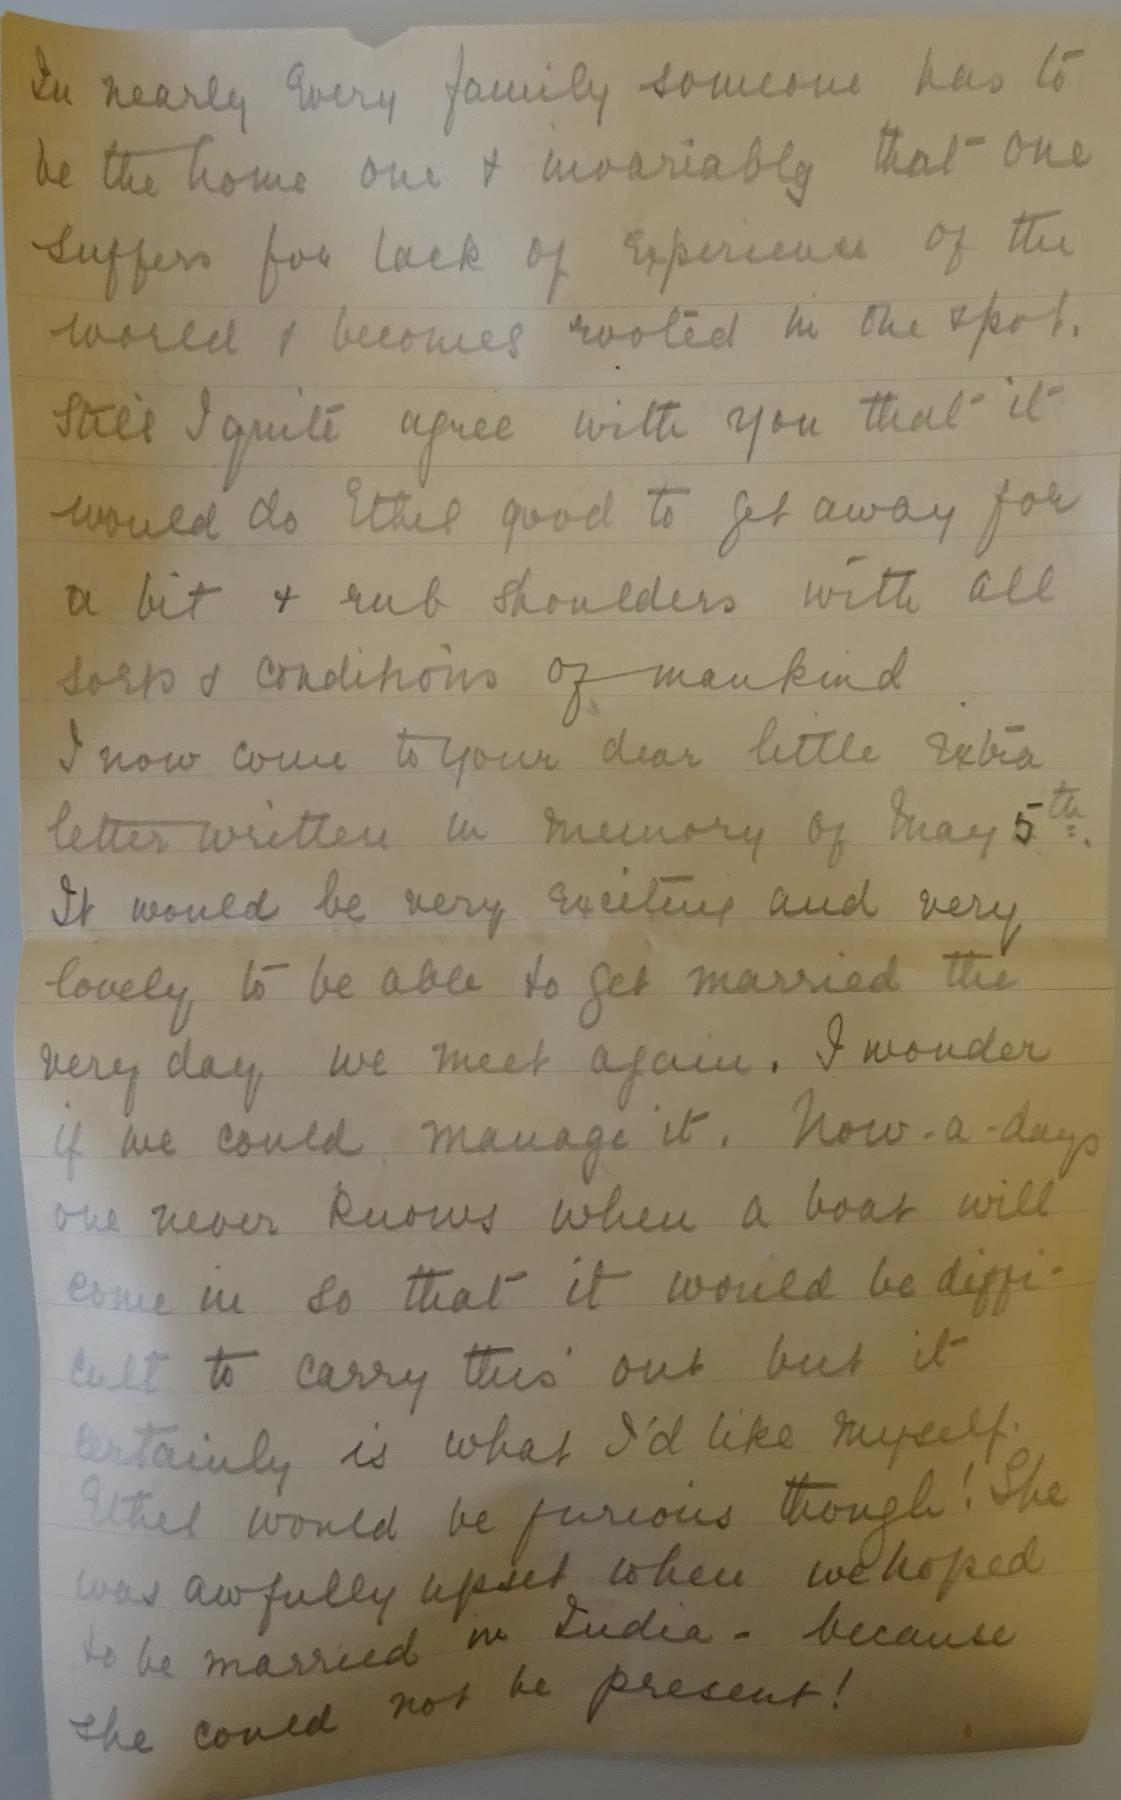 In nearly every family someone has to
be the home one & invariably that one
suffers for lack of experience of the
world & becomes rooted in one spot.
Still I quite agree with you that it
would do Ethel good to get away for
a bit & rub shoulders with all
sorts & conditions of mankind
I now come to your dear little extra
letter written in memory of May 5th.
It would be very exciting and very
lovely to be able to get married the
very day we meet again. I wonder
if we could manage it. Now-a-days
one never knows when a boat will
come in so that it would be diffi-
cult to carry this out but it
certainly is what I'd like myself.
Ethel would be furious though! She
was awfully upset when we hoped
to be married in India - because
she could not be present!